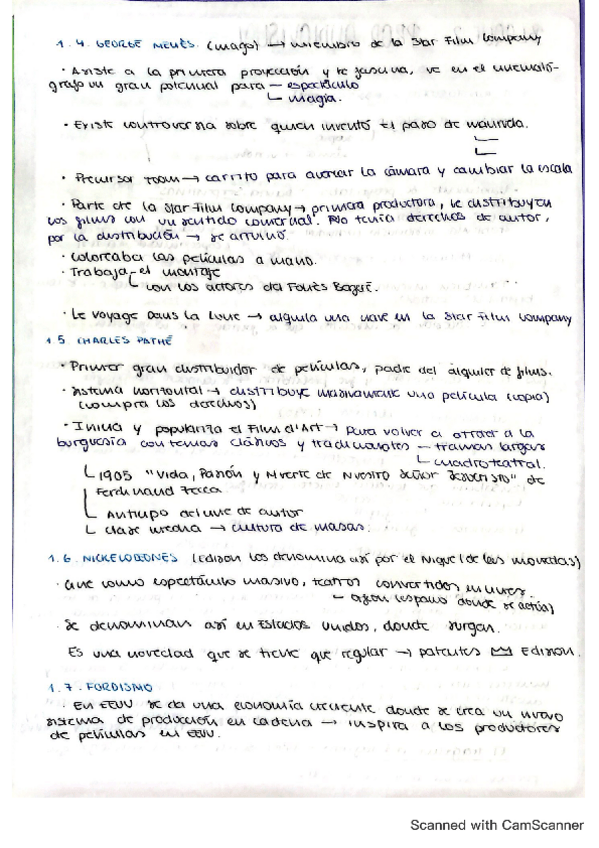 1.4. GEORGE MÉLIÈS (mago) → miembro de la Star Film Company
· Asiste a la primera proyección y le fascina, ve en el cinemató-
grafo un gran potencial para — espectáculo
magia.
· Existe controversia sobre quien inventó el paso de manivela.
· Precursor zoom → carrito para acercar la cámara y cambiar la escala
· Parte de la Star Film Company → primera productora, le distribuyen
los films con un sentido comercial. No tenía derechos de autor,
por la distribución → se arruinó.
· Coloreaba las películas a mano.
· Trabaja — el montaje
con los actores del
· Le voyage Dans la Lune → alquila una nave en la Star Film Company
1.5 CHARLES PATHÉ
· Primer gran distribuidor de películas, padre del alquiler de films.
· Sistema horizontal → distribuye masivamente una película (copia)
(compra los derechos)
· Inicia y populariza el Film d'Art → Para volver a atraer a la
burguesía con temas clásicos y tradicionales — tramas largas
cuadro teatral.
1905 "Vida, Pasión y Muerte de Nuestro Señor Jesucristo" de
Ferdinand Zecca
Anticipo del cine de autor
clase media → cultura de masas.
1.6. NICKELODEONES (Edison los denomina así por el Níquel de las monedas)
· Cine como espectáculo masivo, teatros convertidos en cines.
(espacio donde se actúa)
· Se denominan así en Estados Unidos, donde surgen.
Es una novedad que se tiene que regular → patentes Edison.
1.7. FORDISMO
· En EEUU se da una economía creciente donde se crea un nuevo
sistema de producción en cadena → inspira a los productores
de películas en EEUU.
Scanned with CamScanner